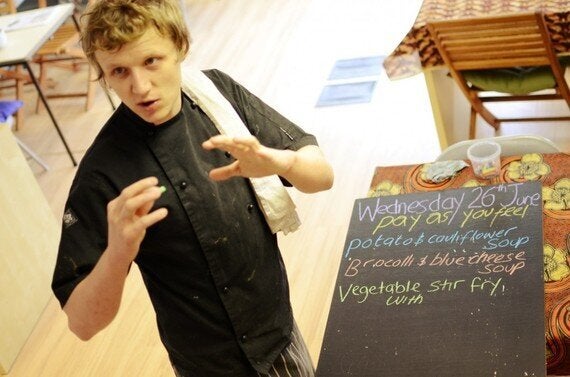 Wednesday 26th June
pay as you feel
potato & cauliflower
soup
Brocolli & blue cheese
soup
Vegetable stir fry,
with